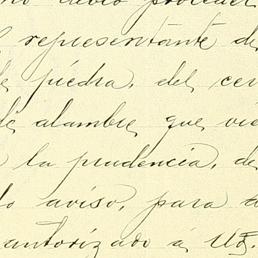 no debió proceder
representante de
de piedra, del cer
de alambre que vie
a la prudencia, de
do aviso, para
autorizado á Ud.